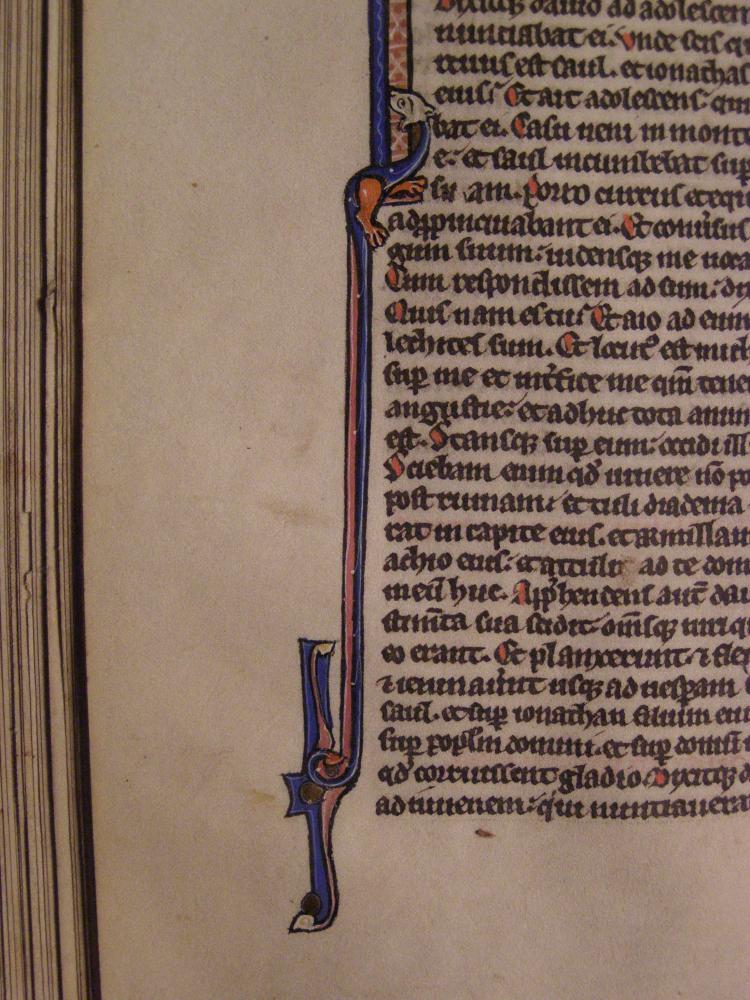 Dixitq; dauid ad adolescen
nunciabat ei. Vnde scis q
tuus est saul. et ionathas
eius. Et ait adolescens qui
bat ei. Casu ueni in monte
et saul incumbebat sup
am. Porro currus et equi
adpropinquabant ei. Et conuersus
gum suum. uidensq; me uoca
Cum respondissem adsum. di
Quis nam es tu. Et aio ad eum
lechites sum. Et locut9 est michi
sup me et int'fice me qm tene
angustie. et adhuc tota anim
est. Stansq; sup eum. occidi ill
Sciebam enim qd uiuere no po
post ruinam. et tuli diadema
rat in capite eius. et armillam
achio eius. et attuli ad te dom
meu huc. App'hendens aut dau
stim̄ta sua scidit. om̄sq; uiri q
eo erant. Et planxerunt. ⁊ fle
⁊ ieiunauer̄t usq; ad uesperam
saul. et sup ionathan filium eiu
sup popl'm domini. et sup domu
qd corruissent gladio. Dixitq; d
ad iuuenem. qui nuntiauera